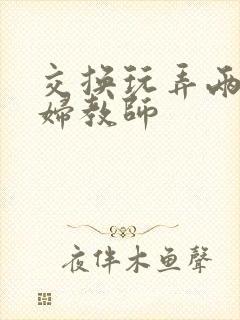 交换玩弄两
婦教師
夜伴木鱼聲